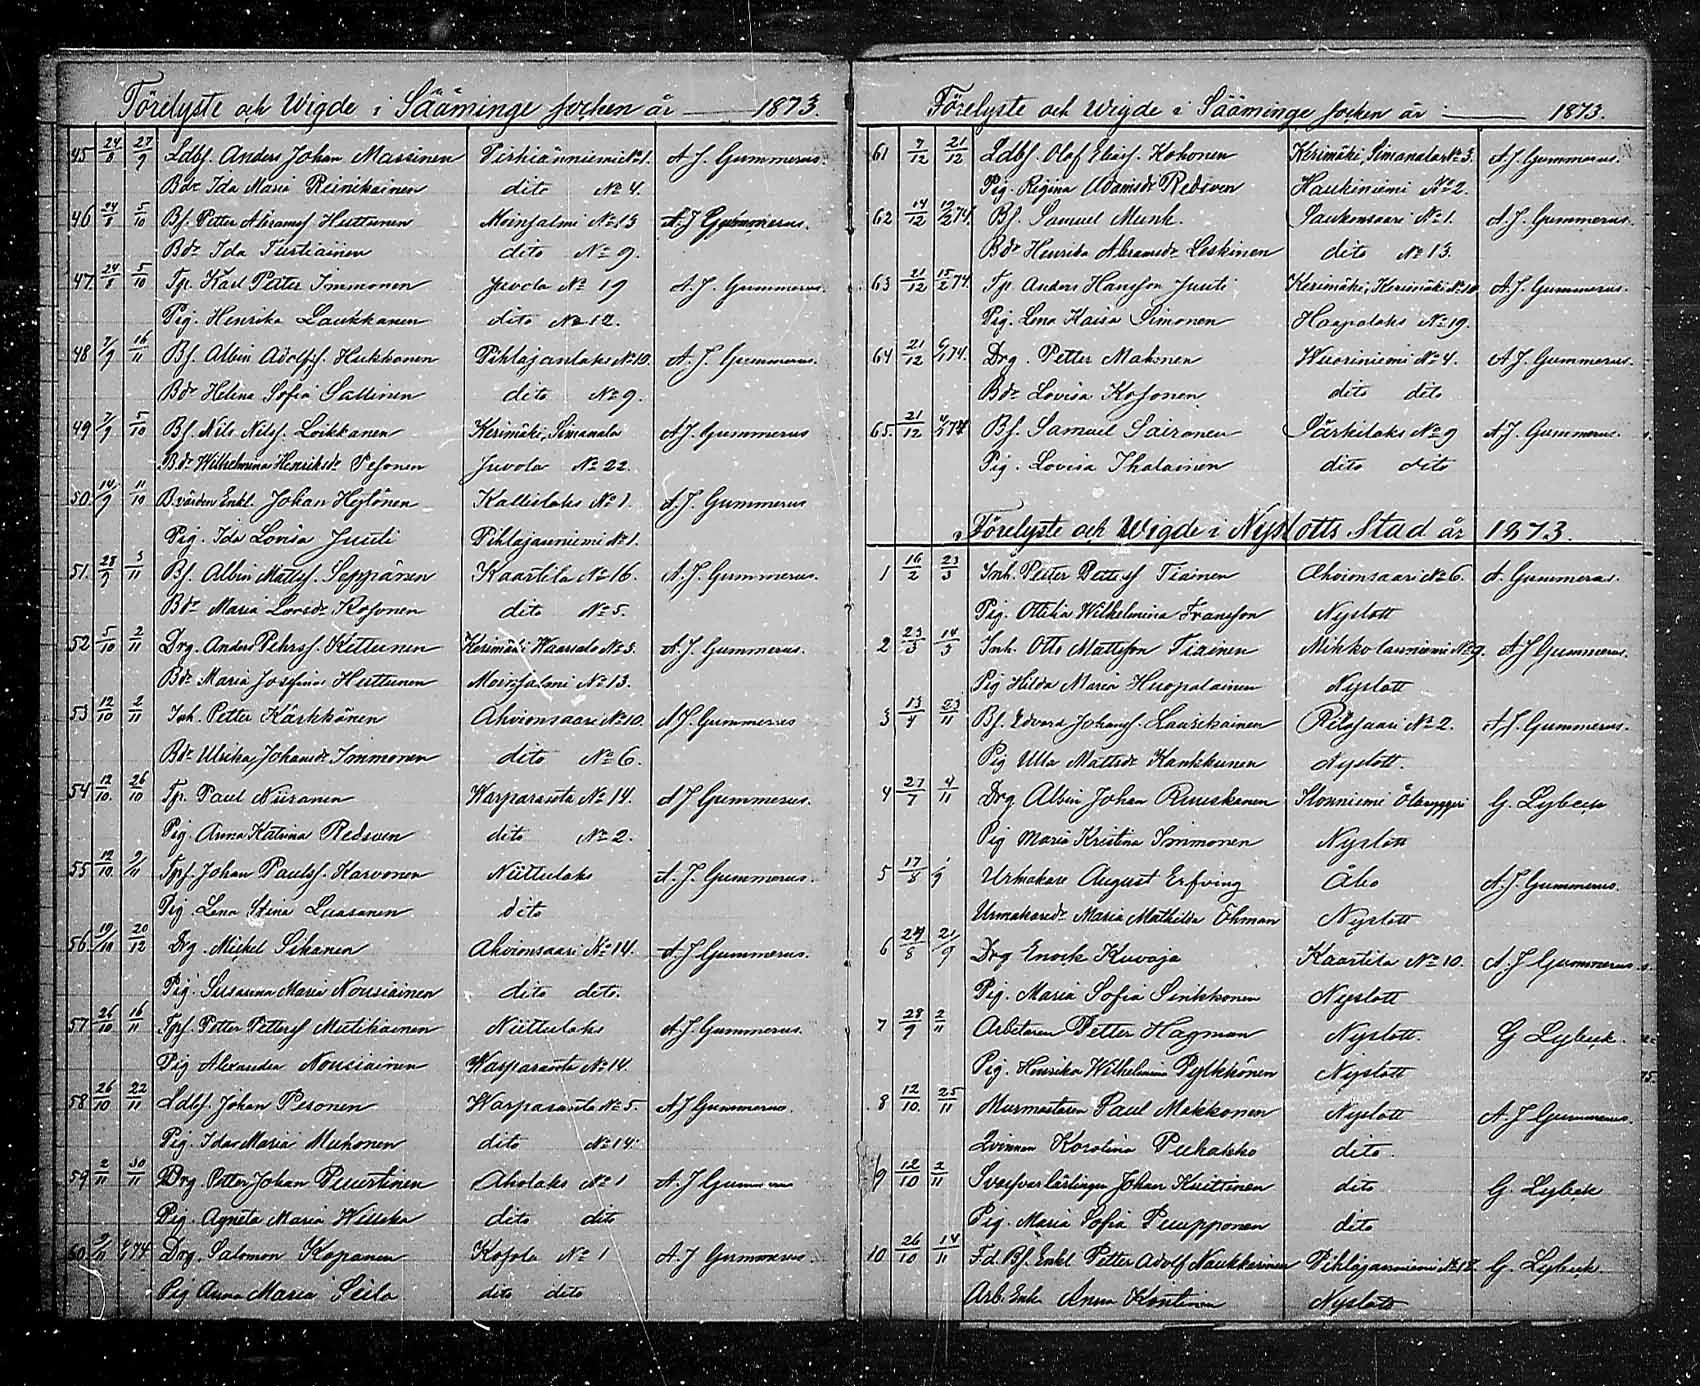 Förelyste och Wigde i Sääminge socken år 1873.
45 24/8 27/9 Ldbs. Anders Johan Massinen Pirhiänniemi No 1. A. J. Gummerus.
Bdr Ida Maria Reinikainen dito No 4.
46 24/8 5/10 Bs. Petter Abramss Huttunen Moinsalmi No 13 A. J. Gummerus.
Bdr Ida Tustiainen dito No 9.
47. 24/8 5/10 Tp. Karl Petter Immonen Juvola No 19 A. J. Gummerus.
Pig. Henrika Laukkanen dito No 12.
48 7/9 16/11 Bs. Albin Adolfs. Hukkanen Pihlajanlaks No 10. A. J. Gummerus.
Bdr Helena Sofia Sallinen dito No 9.
49 7/9 5/10 Bs. Nils Nilss. Loikkanen Kerimäki, Simanala A. J. Gummerus
Bdr Wilhelmina Henriksdr Pesonen Juvola No 22.
50. 14/9 11/10 B.värden Enkl. Johan Heiskanen Kallislaks No 1. A. J. Gummerus
Pig. Ida Lovisa Juuti Pihlajaniemi No 1.
51. 28/9 3/11 Bs. Albin Matss. Seppänen Kaartila No 16. A. J. Gummerus.
Bdr Maria Larsdr Kosonen dito No 5.
52 5/10 2/11 Drg. Anders Pehrss. Kettunen Kerimäki Haarala No 3. A. J. Gummerus.
Bdr Maria Josefina Huttunen Moinsalmi No 13.
53 12/10 2/11 Inh. Petter Kärkkänen Ahvionsaari No 10. A J. Gummerus
Bdr Ulrika Johansdr Immonen dito No 6.
54 12/10. 26/10 Tp. Paul Niiranen Warparanta No 14. A J Gummerus.
Pig. Anna Katrina Redsven dito No 2.
55 12/10 9/11 Tps. Johan Paulss. Karvonen Niittulaks A. J. Gummerus.
Pig. Lena Stina Luasanen dito
56. 19/10 20/12 Drg. Mickel Sihanen Ahvionsaari No 14. A. J Gummerus.
Pig. Susanna Maria Nousiainen dito dito.
57 26/10 16/11 Tps. Petter Petterss Mutikainen Niittulaks A. J. Gummerus.
Pig Alexandra Nousiainen Warparanta No 14.
58 26/10 22/11 Ldbs. Johan Pesonen Warparanta No 5. A J Gummerus.
Pig. Ida Maria Muhonen dito No 14.
59 2/11 30/11 Drg. Petter Johan Puustinen Aholaks No 1 A. J Gummerus
Pig. Agneta Maria Willaka dito dito
60. 74. Drg. Salomon Kapanen Kosola No 1 A. J Gummerus
Pig Anna Maria Seila dito dito
Förelyste och Wigde i Sääminge socken år 1873.
61 7/12 21/12 Ldbs. Olof Eliass. Kohonen Kerimäki, Simanala No 3. A J Gummerus.
Pig. Regina Adamsdr Redsven Haukiniemi No 2.
62 14/12 74. Bs. Samuel Munk. Saukonsaari No 1. A. J. Gummerus.
Bdr Henrika Abramsdr Leskinen dito No 13.
63 21/12 15/2 74. Tp. Anders Hansson Juuti Kerimäki, Kerimäki No 10. A. J. Gummerus.
Pig. Lena Kaisa Simonen Haapalaks No 19.
64 21/12 6/1 74. Drg. Petter Makonen Wuoriniemi No 4. A J. Gummerus.
Bdr Lovisa Kosonen dito dito
65. 21/12 74 Bs. Samuel Sairanen Särkilaks No 9 A J. Gummerus.
Pig. Lovisa Ihalainen dito dito
Förelyste och Wigde i Nyslotts Stad år 1873.
1 16/2 23/3 Inh. Petter Petterss Tiainen Ahvionsaari No 6. A. Gummerus.
Pig. Ottilia Wilhelmina Fransson Nyslott
2 23/3 14/3 Inh. Otto Mattsson Tiainen Mihkolanniemi No 9. A J Gummerus.
Pig Hilda Maria Huopalainen Nyslott
3 13/4 23/11 Bs. Edvard Johanss. Laukkainen Pelssaari No 2. A. J. Gummerus.
Pig Ulla Mattsdr Kankkunen Nyslott.
4 27/7 4/11 Drg Albin Johan Ruuskanen Ölbryggeri G. Lybeck
Pig Maria Kristina Immonen Nyslott
5 17/8 Urmakare August Erfving Åbo A. J. Gummerus.
Urmakaredr Maria Mathilda Öhman Nyslott
6 24/8 21/9 Drg Enock Kuvaja Kaartila No 10. A. J Gummerus
Pig. Maria Sofia Sinkkonen Nyslott
7 28/9 2/11 Arbetaren Petter Hagman Nyslott. G Lybeck.
Pig. Henrika Wilhelmina Pylkkönen Nyslott
8 12/10. 25/11 Murmestaren Paul Makkonen Nyslott A. J Gummerus.
Qvinnan Karolina Pukakko dito.
9 12/10 2/11 Svarfvarlärlingen Johan Kuittinen dito G. Lybeck
Pig. Maria Sofia Pumpponen dito
10 26/10 14/11 F.d. Bs. Enkl Petter Adolf Naukkarinen Pihlajanniemi G. Lybeck
Arb. Enk. Anna Kontinen Nyslott